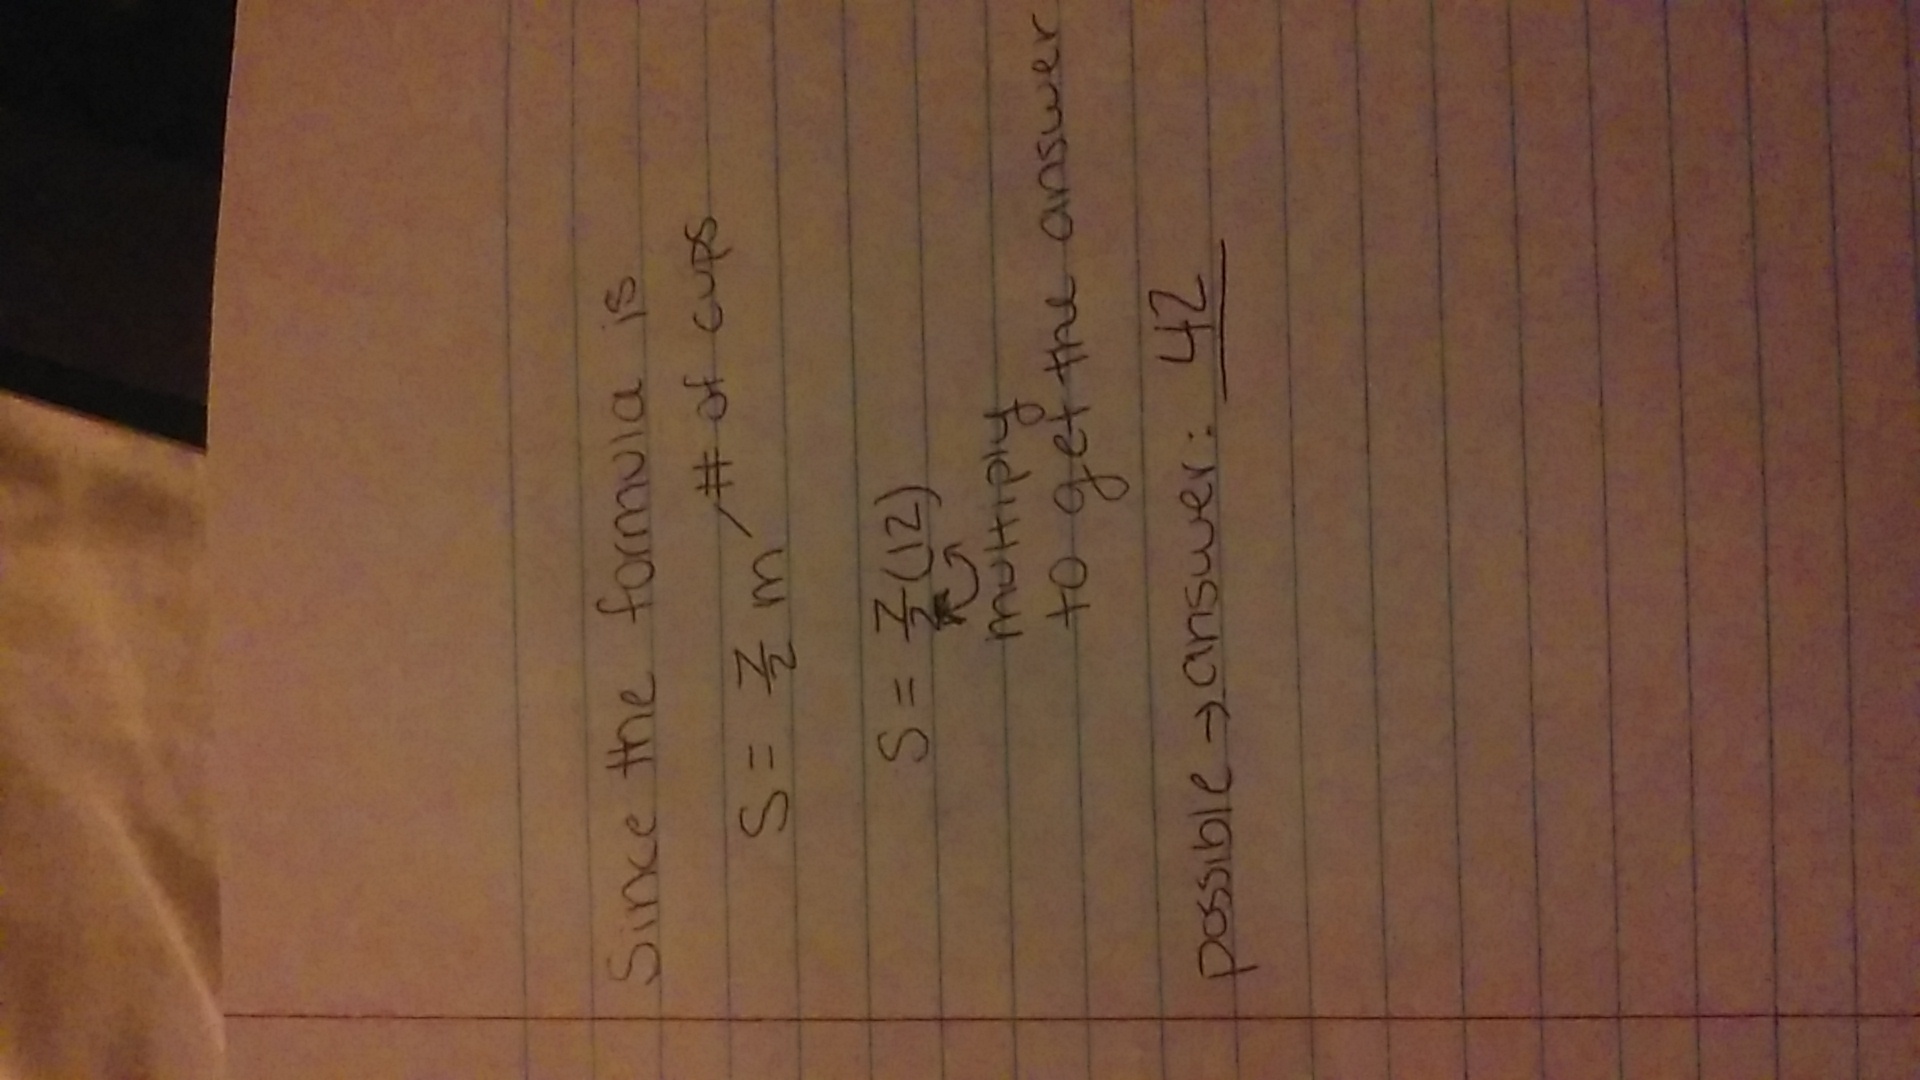 Since the formula is
# of cups
S = 7/2 m
S = 7/2 (12)
multiply
to get the answer
possible → answer: 42